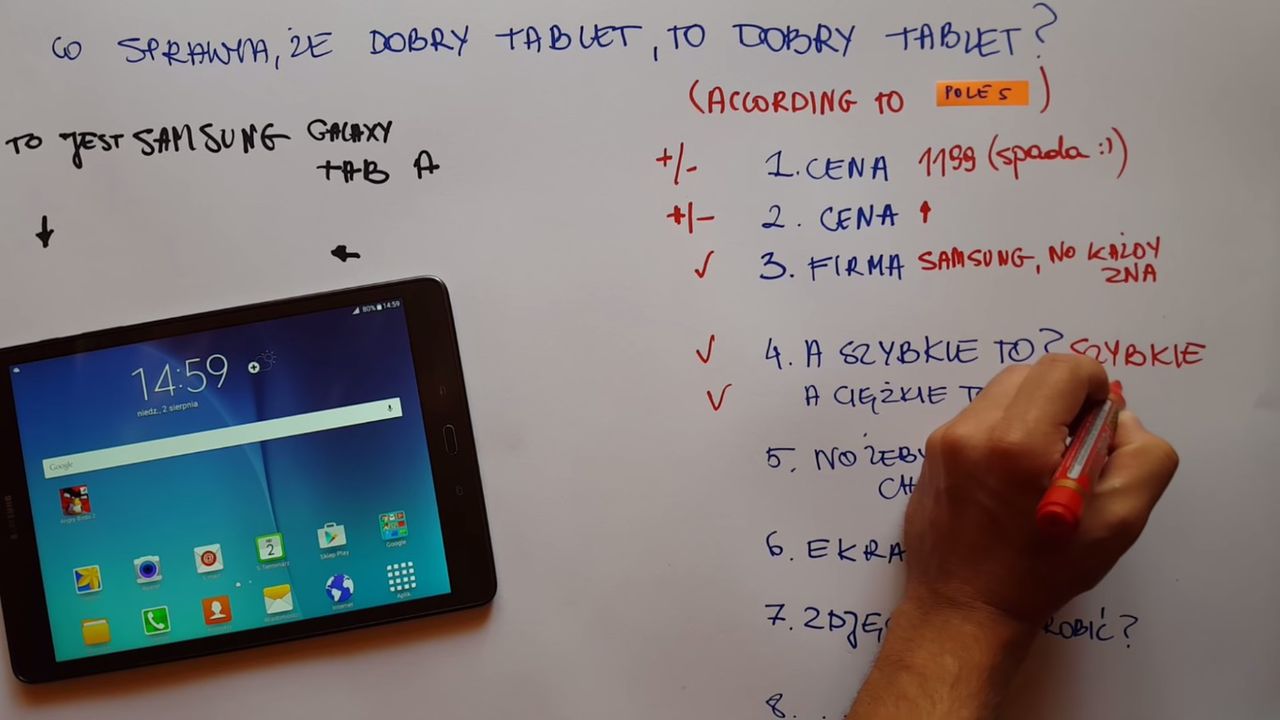 CO SPRAWIA, ŻE DOBRY TABLET, TO DOBRY TABLET?
(ACCORDING TO POLE 5)
TO JEST SAMSUNG GALAXY
TAB A
+/- 1. CENA 1199 (spada :))
+/- 2. CENA
3. FIRMA SAMSUNG, NO KAŻDY
ZNA
4. A SZYBKIE TO? SZYBKIE
A CIĘŻKIE
5. NO ŻEBY
6.
7. ROBIĆ?
8. ..
80% 14:59
14:59
niedz., 2 sierpnia
Google
Angry Birds 2
S Terminarz
Sklep Play
Google
Internet
Aplik.
SAMSUNG